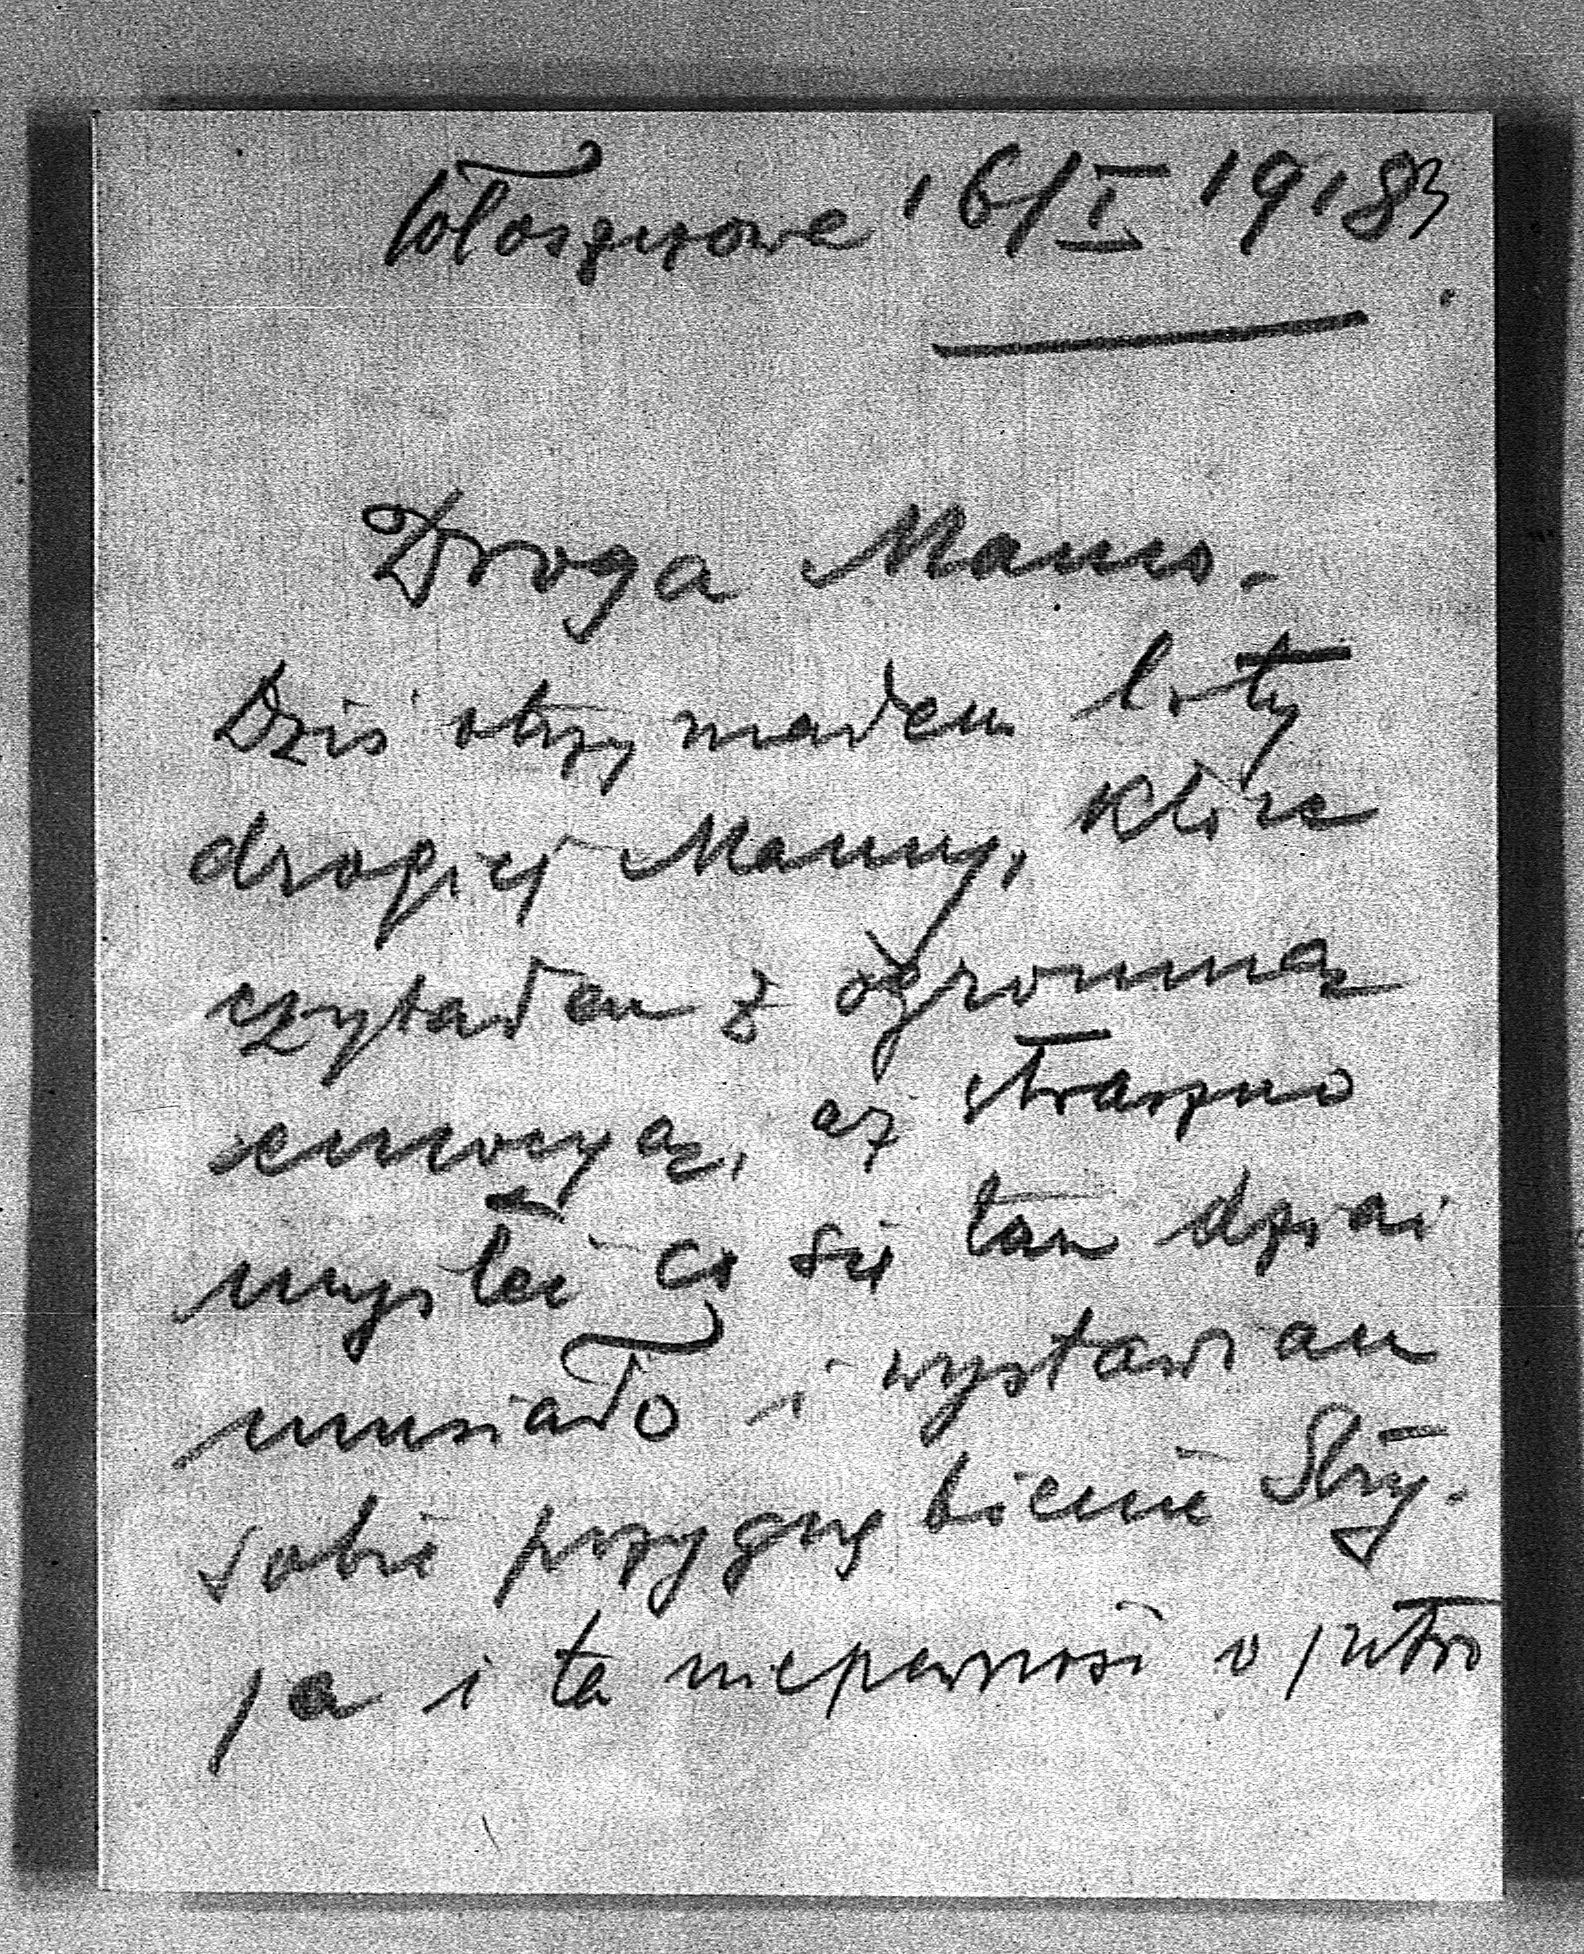 Wołoszynowe 16/I 1918
Droga Mamo.
Dziś otrzymałem listy
drogiej Mamy, które
czytałem z ogromną
emocyą, aż straszno
myśleć co się tam dziać
musiało i wystawiam
sobie przygnębienie Stry-
ja i ta niepewność o jutro